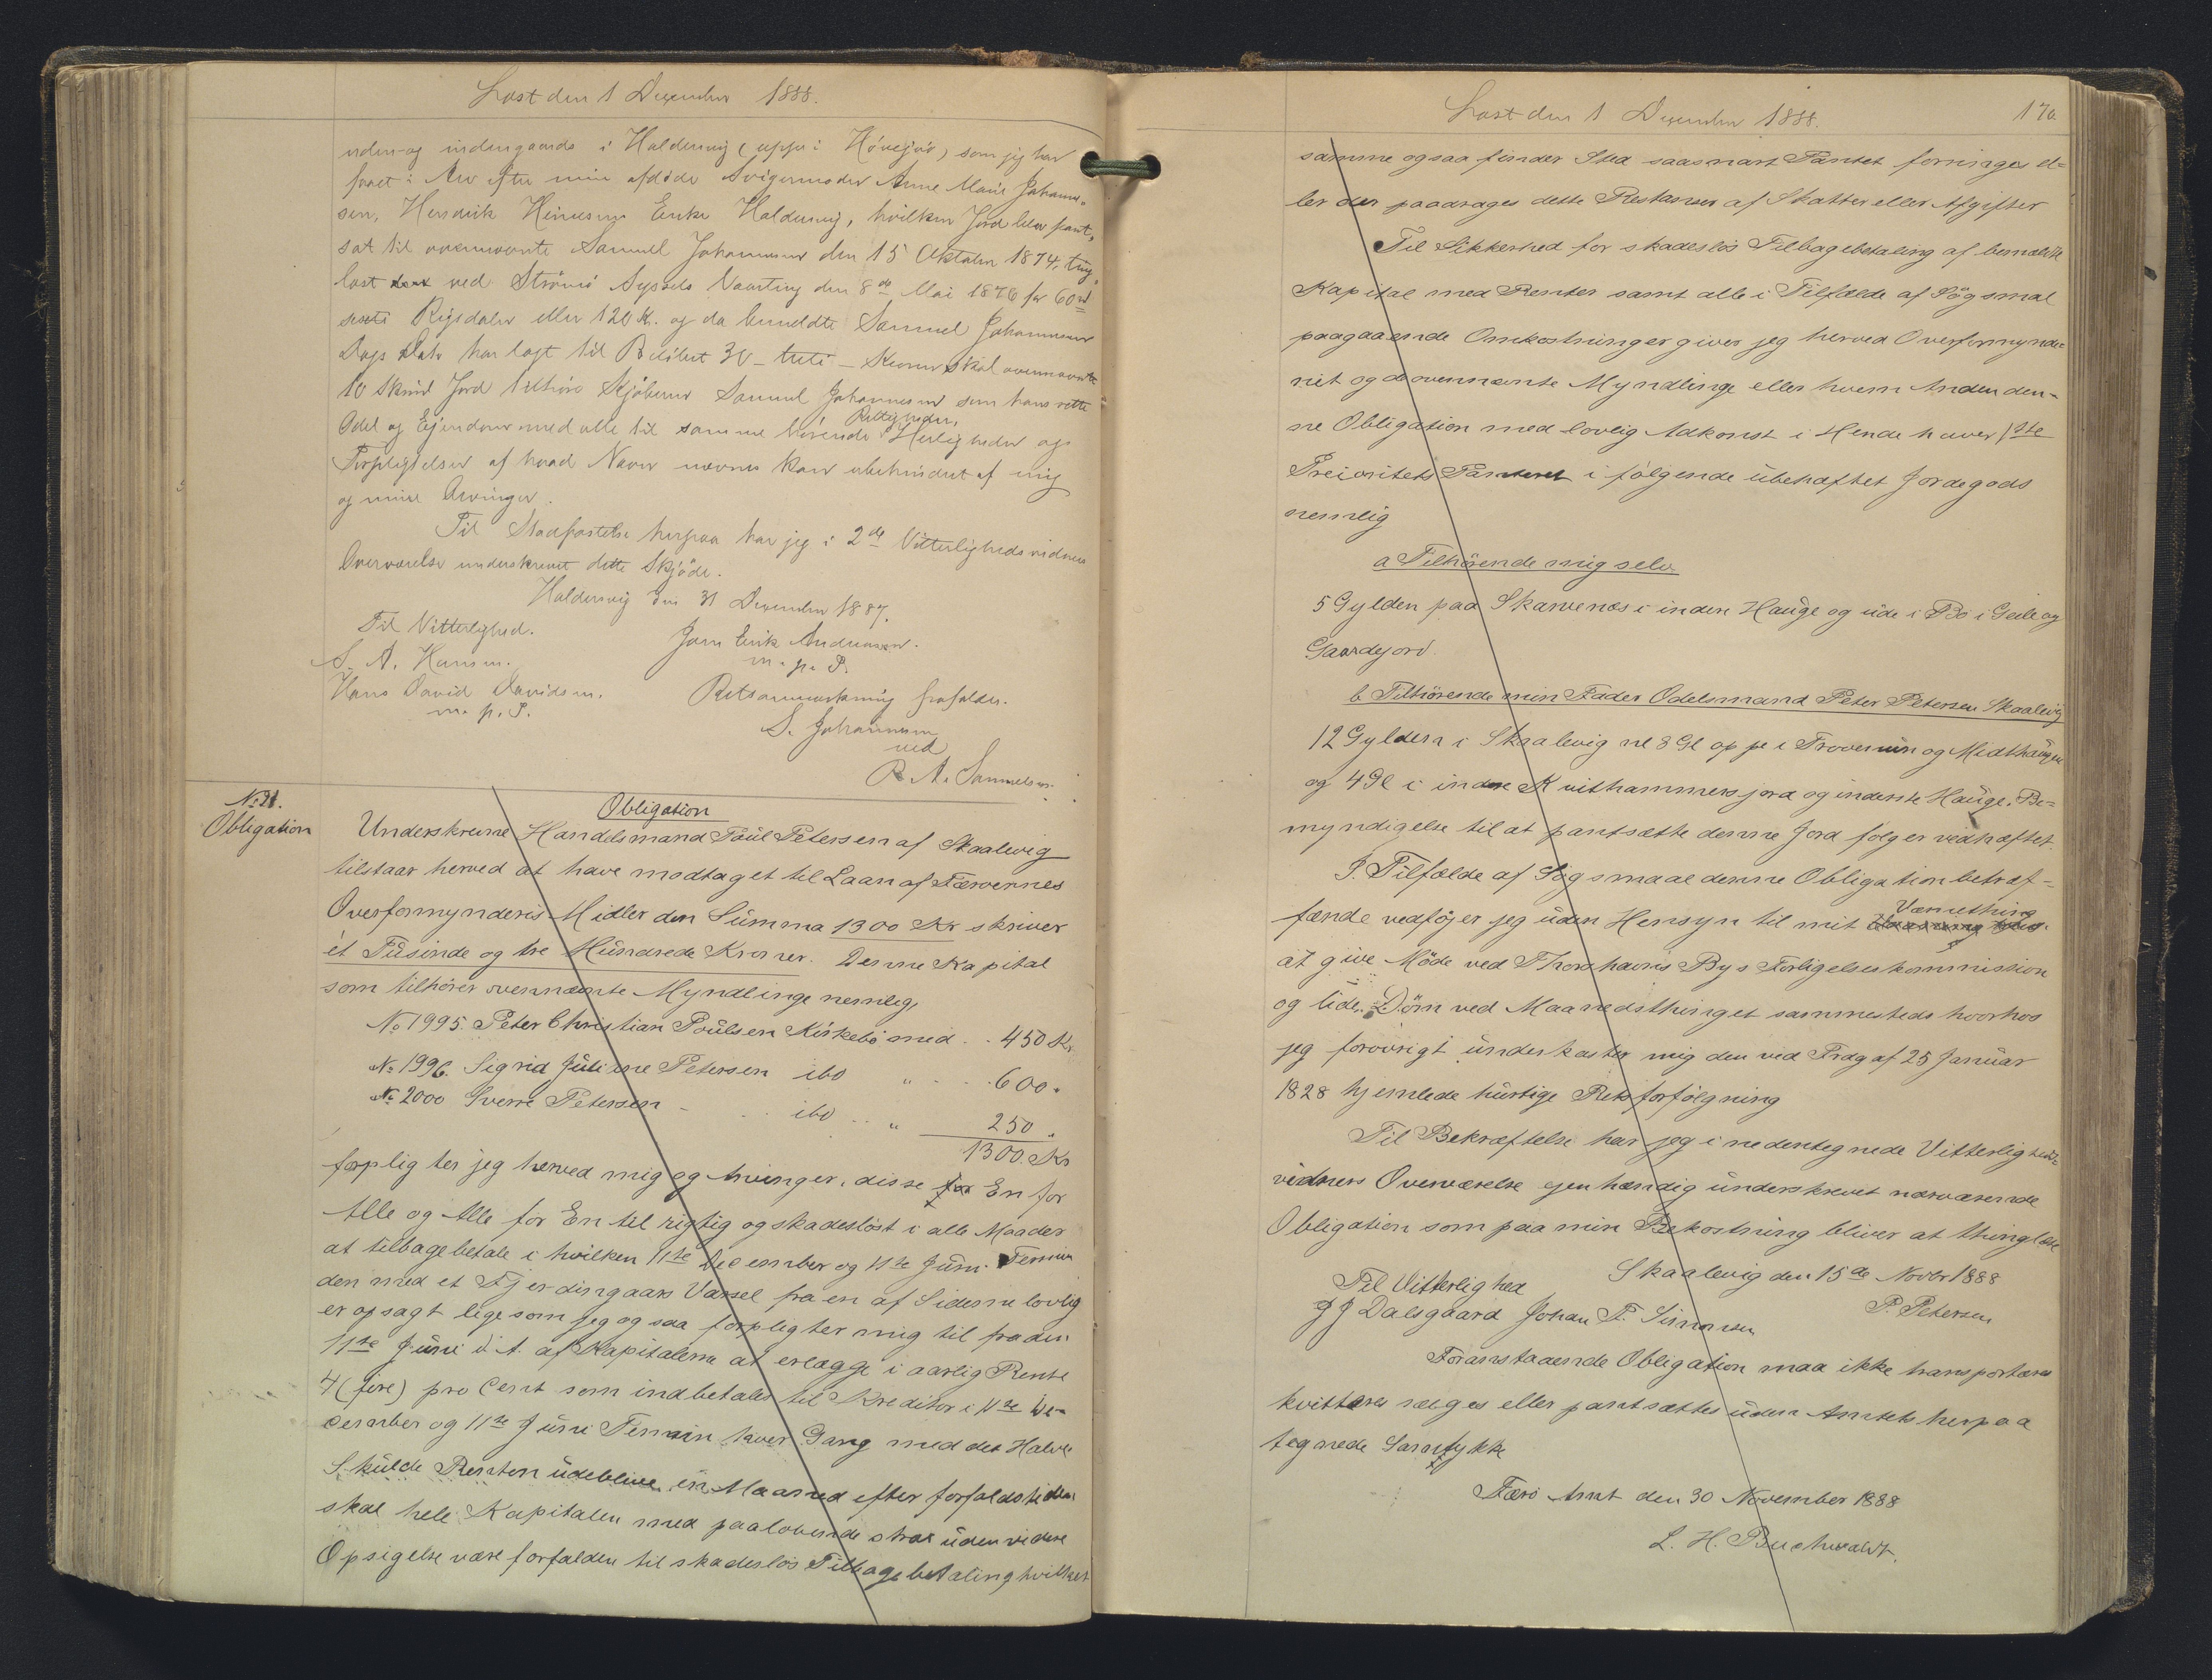 Læst den 1 December 1888.
uden- og indengaards i Haldersvig (uppe i Hövejrö) som jeg har
faaet i Arv efter min afdöde Svigermoder Anne Marie Johanne-
sen, Hendrik Hinesens Enke Haldersvig, hvilken Jord blev pant-
sat til ovennævnte Samuel Johannesen den 15 Oktober 1874, ting-
læst ved Strömö Syssels Vaarting den 8de Mai 1876 for 60 rd
sexti Rigsdaler eller 120 K. og da bemeldte Samuel Johannesen
Dags Dato har lagt til Belöbet 30 - treti - Kroner skal ovennævnte
10 Skind Jord tilhöre Skjöberen Samuel Johannesen som hans rette
Odel og Ejendom med alle til samme hörende Rettigheder, Herligheder og
Forpligtelser af hvad Navn nævnes kan ubehindret af mig
og mine Arvinger.
Til Stadfæstelse herpaa har jeg i 2de Vitterlighedsvidners
Overværelse underskrevet dette Skjöde.
Haldersvig den 31 December 1887.
Til Vitterlighed.
Jörn Erik Andreasen.
S. A. Hansen.
m. p. P.
Hans David Davidsen.
m. p. P.
Retsanmærkning frafalder.
S. Johannesen
ved
R. A. Samuelsen.
No 21.
Obligation
Obligation
Underskrevne Handelsmand Poul Petersen af Skaalevig
tilstaar herved at have modtaget til Laan af Færøernes
Overformynderis Midler den Summa 1300 Kr skriver
et Tusinde og tre Hundrede Kroner. Denne Kapital
som tilhører ovennævnte Myndlinge nemlig,
No 1995. Peter Christian Poulsen Kirkebö med . . 450 Kr.
No 1996. Sigrid Juliane Petersen ibd " . . . 600 "
No 2000 Sverre Petersen - . . ibd . . " 250 "
1300. Kr
forpligter jeg herved mig og Arvinger, disse En for
Alle og Alle for En til rigtig og skadeslöst i alle Maader
at tilbagebetale i hvilken 11te December og 11te Juni Termin
den med et Fjerdingaars Varsel fra en af Siderne lovlig
er opsagt ligesom jeg ogsaa forpligter mig til fra den
11te Juni d. A. af Kapitalerne at erlægge i aarlig Rente
4 (fire) pro Cent som indbetales til Kreditor i 11te De-
cember og 11te Juni Termin hver Gang med det Halve
Skulde Renten udeblive en Maaned efter forfaldstiden
skal hele Kapitalen med paalobende strax uden videre
Opsigelse være forfalden til skadeslös Tilbagebetaling hvilket
Læst den 1 December 1888.
170.
samme ogsaa finder Sted saasnart Pantet forringes el-
ler der paadrages dette Restanser af Skatter eller Afgifter
Til Sikkerhed for skadeslös Tilbagebetaling af bemeldte
Kapital med Renter samt alle i Tilfælde af Sögsmal
paagaaende Omkostninger giver jeg herved Overformynde-
riet og de ovennævnte Myndlinge eller hvem Anden den-
ne Obligation med lovlig Adkomst i Hende haver 1ste
Prioritets Panteret i følgende übehæftet Jordegods
nemlig
a Tilhörende mig selv
5 Gylden paa Skarvenæs i inden Hauge og ude i Bö i Geile og
Gaardejord.
b Tilhörende min Fader Odelsmand Peter Petersen Skaalevig
12 Gylden i Skaalevig nl 8 Gl oppe i Trøverum og Midthaugen
og 4 Gl i indre Kvithammersjord og inderste Hauge. Be-
myndigelse til at pantsætte denne Jord følger vedhæftet.
I Tilfælde af Sögsmaal denne Obligation betræf-
fænde vedföjer jeg uden Hensyn til mit Værnething
at give Möde ved Thorshavns Bys Forligelseskommission
og lide Döm ved Maanedsthinget sammesteds hvorhos
jeg forövrigt underkaster mig den ved Frdg af 25 Januar
1828 hjemlede hurtige Retsforfölgning
Til Bekræftelse har jeg i nedentegnede Vitterligheds-
vidners Overværelse egenhændig underskrevet nærværende
Obligation som paa min Bekostning bliver at thinglæse
Skaalevig den 15de Novbr 1888
Til Vitterlighed
P. Petersen
J J Dalsgaard Johan F. Simonsen
Foranstaaende Obligation maa ikke transporteres
kvitteres sælges eller pantsættes uden Amtets herpaa
tegnede Samtykke
Færö Amt den 30 November 1888
L. H. Buchwaldt.